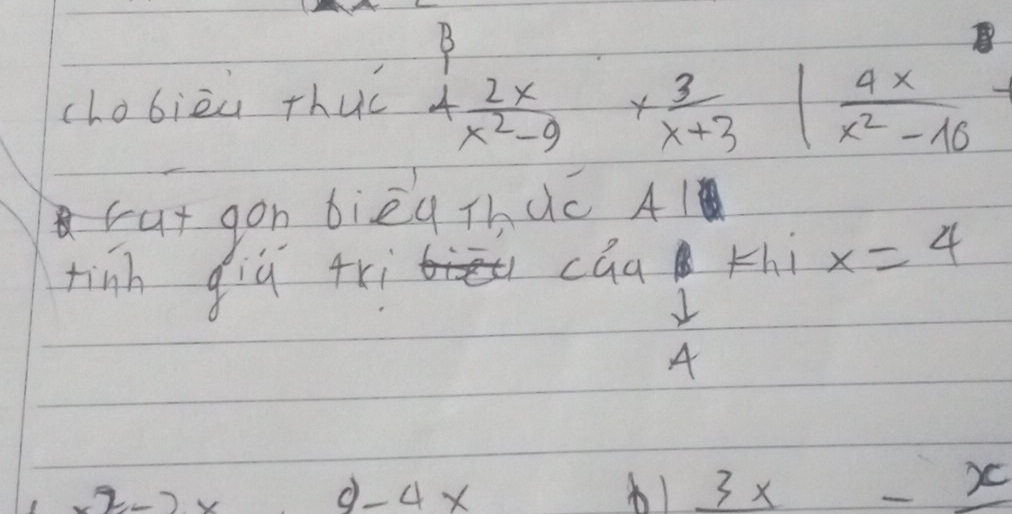 B
cho biểu thức A 2x/x²-9 + 3/x+3 | 4x/x²-16
rut gon biểu thức A
tính giá trị của khi x = 4
↓
A
9-4x b) 3x - x